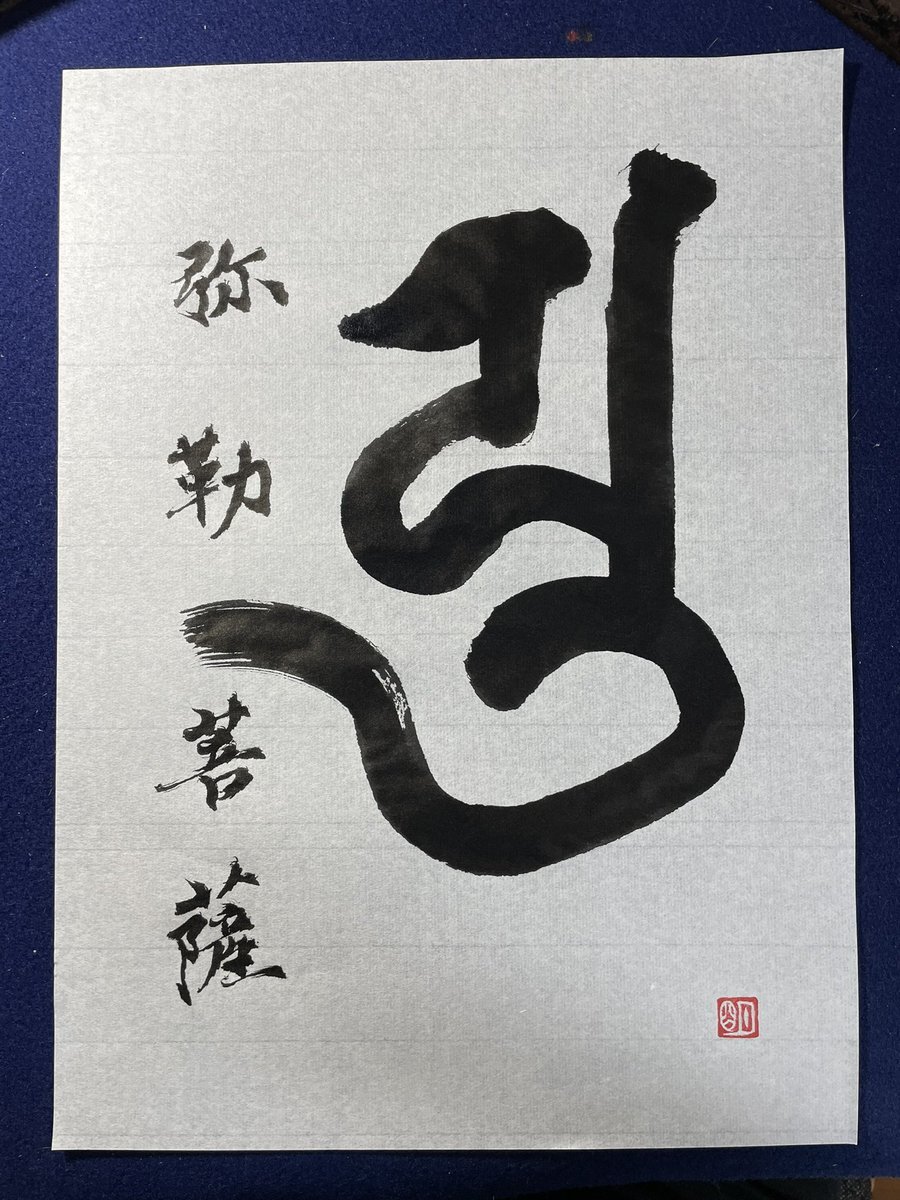 𑖧𑖲
弥勒菩薩